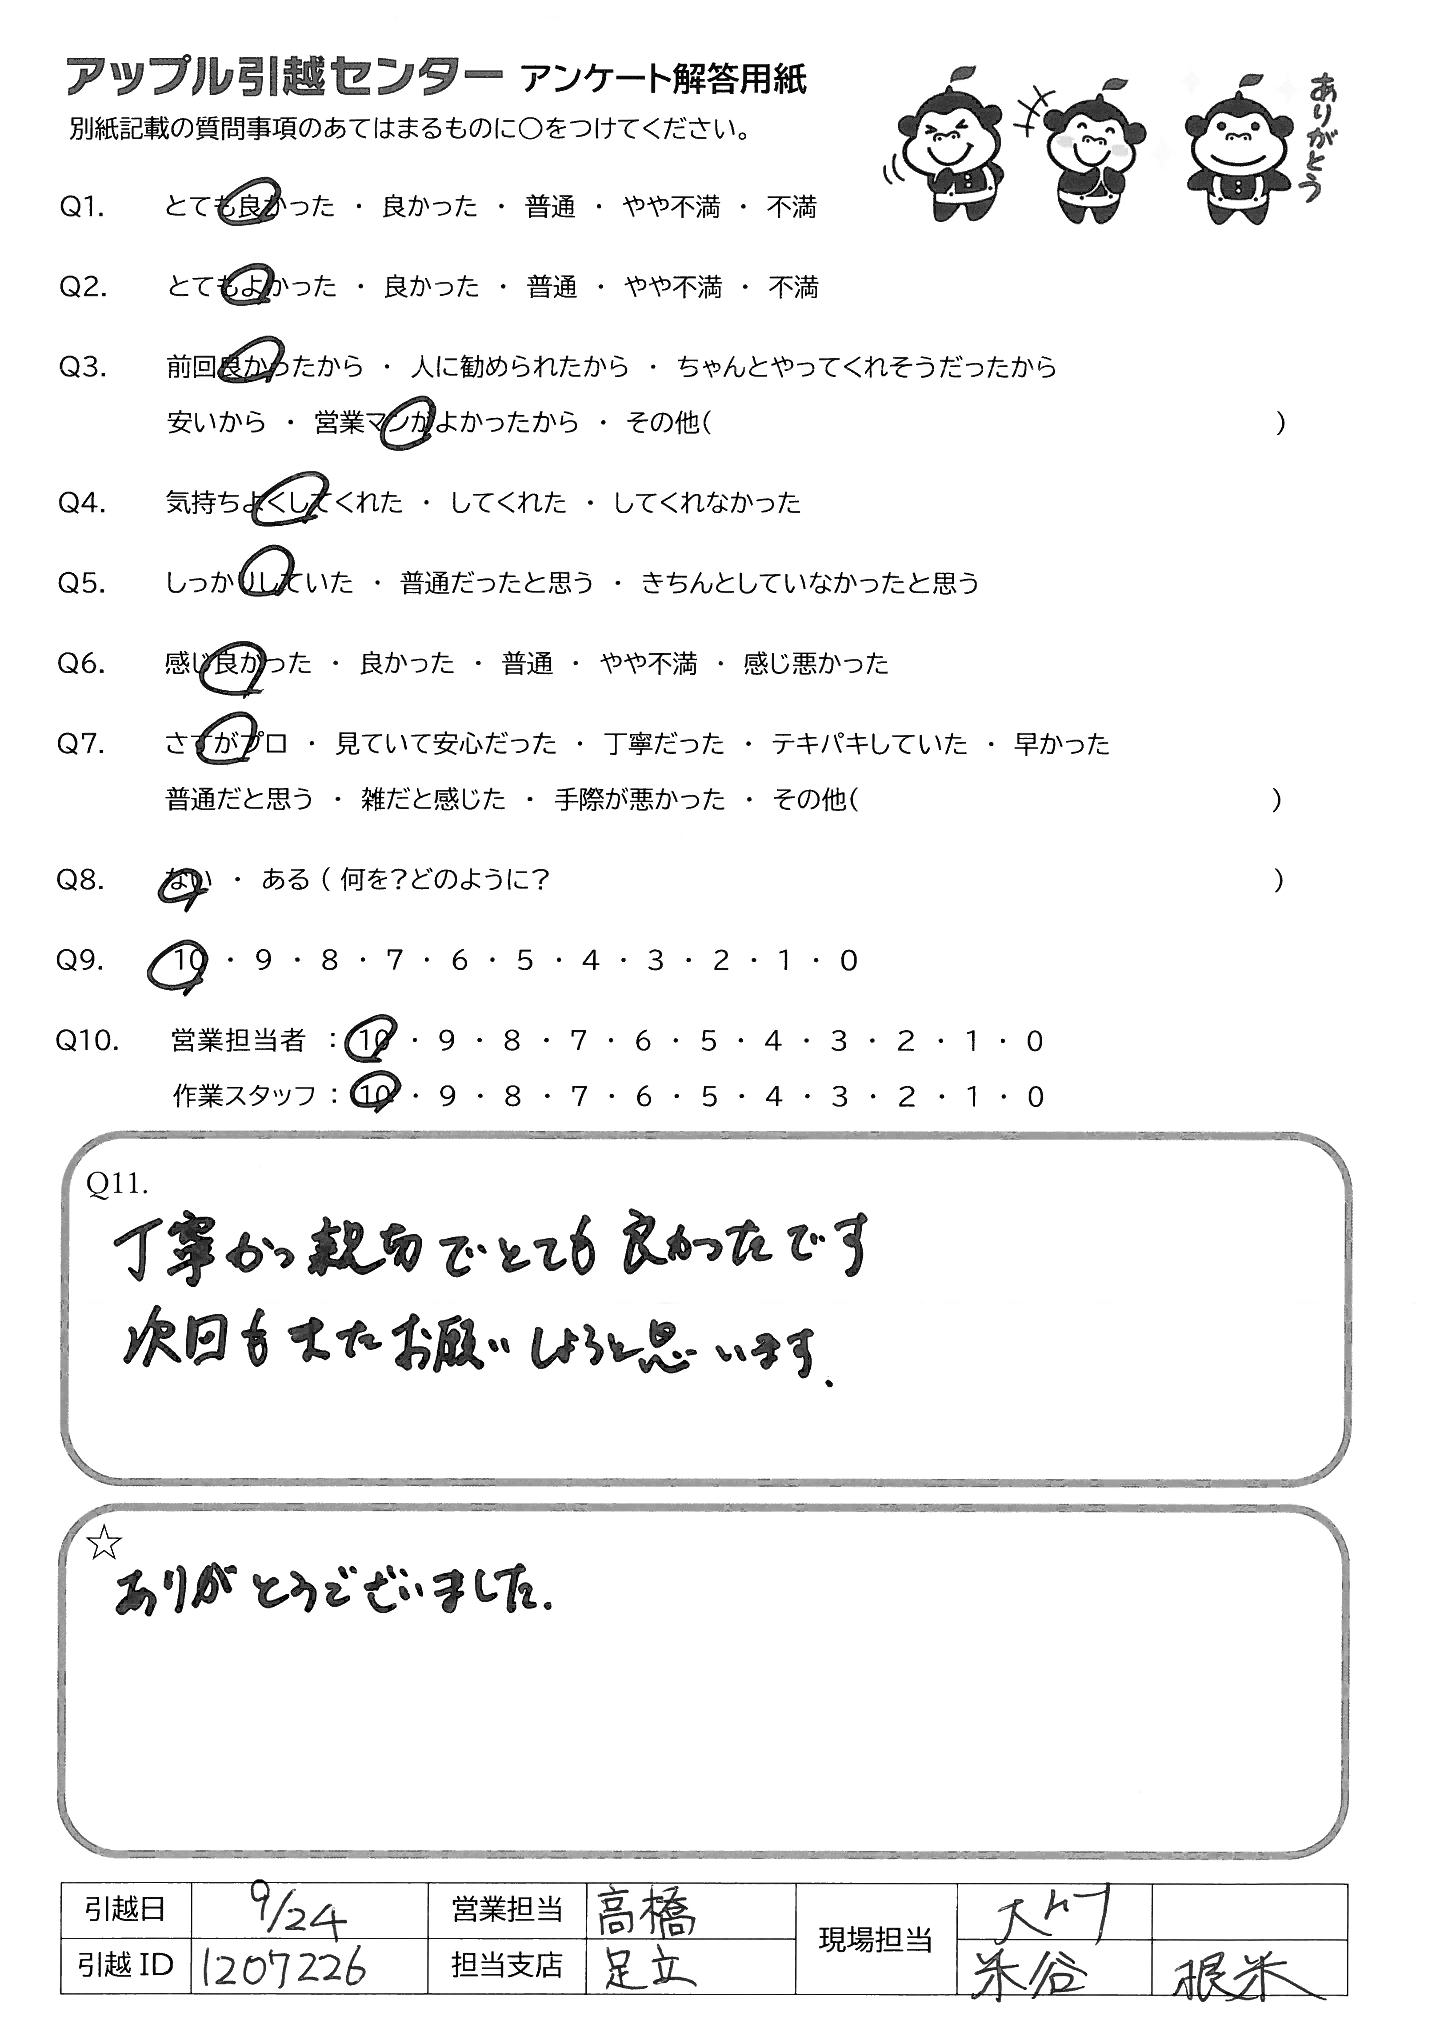 アップル引越センター アンケート解答用紙
別紙記載の質問事項のあてはまるものに○をつけてください。
ありがとう
Q1. とても良かった ・ 良かった ・ 普通 ・ やや不満 ・ 不満
Q2. とてもよかった ・ 良かった ・ 普通 ・ やや不満 ・ 不満
Q3. 前回良かったから ・ 人に勧められたから ・ ちゃんとやってくれそうだったから
安いから ・ 営業マンがよかったから ・ その他( )
Q4. 気持ちよくしてくれた ・ してくれた ・ してくれなかった
Q5. しっかりしていた ・ 普通だったと思う ・ きちんとしていなかったと思う
Q6. 感じ良かった ・ 良かった ・ 普通 ・ やや不満 ・ 感じ悪かった
Q7. さすがプロ ・ 見ていて安心だった ・ 丁寧だった ・ テキパキしていた ・ 早かった
普通だと思う ・ 雑だと感じた ・ 手際が悪かった ・ その他( )
Q8. ない ・ ある ( 何を?どのように? )
Q9. 10 ・ 9 ・ 8 ・ 7 ・ 6 ・ 5 ・ 4 ・ 3 ・ 2 ・ 1 ・ 0
Q10. 営業担当者 : 10 ・ 9 ・ 8 ・ 7 ・ 6 ・ 5 ・ 4 ・ 3 ・ 2 ・ 1 ・ 0
作業スタッフ : 10 ・ 9 ・ 8 ・ 7 ・ 6 ・ 5 ・ 4 ・ 3 ・ 2 ・ 1 ・ 0
Q11.
丁寧かつ親切でとても良かったです
次回もまたお願いしようと思います.
☆
ありがとうございました.
引越日 9/24 営業担当 高橋 現場担当
引越ID 1207226 担当支店 足立 米谷 根米